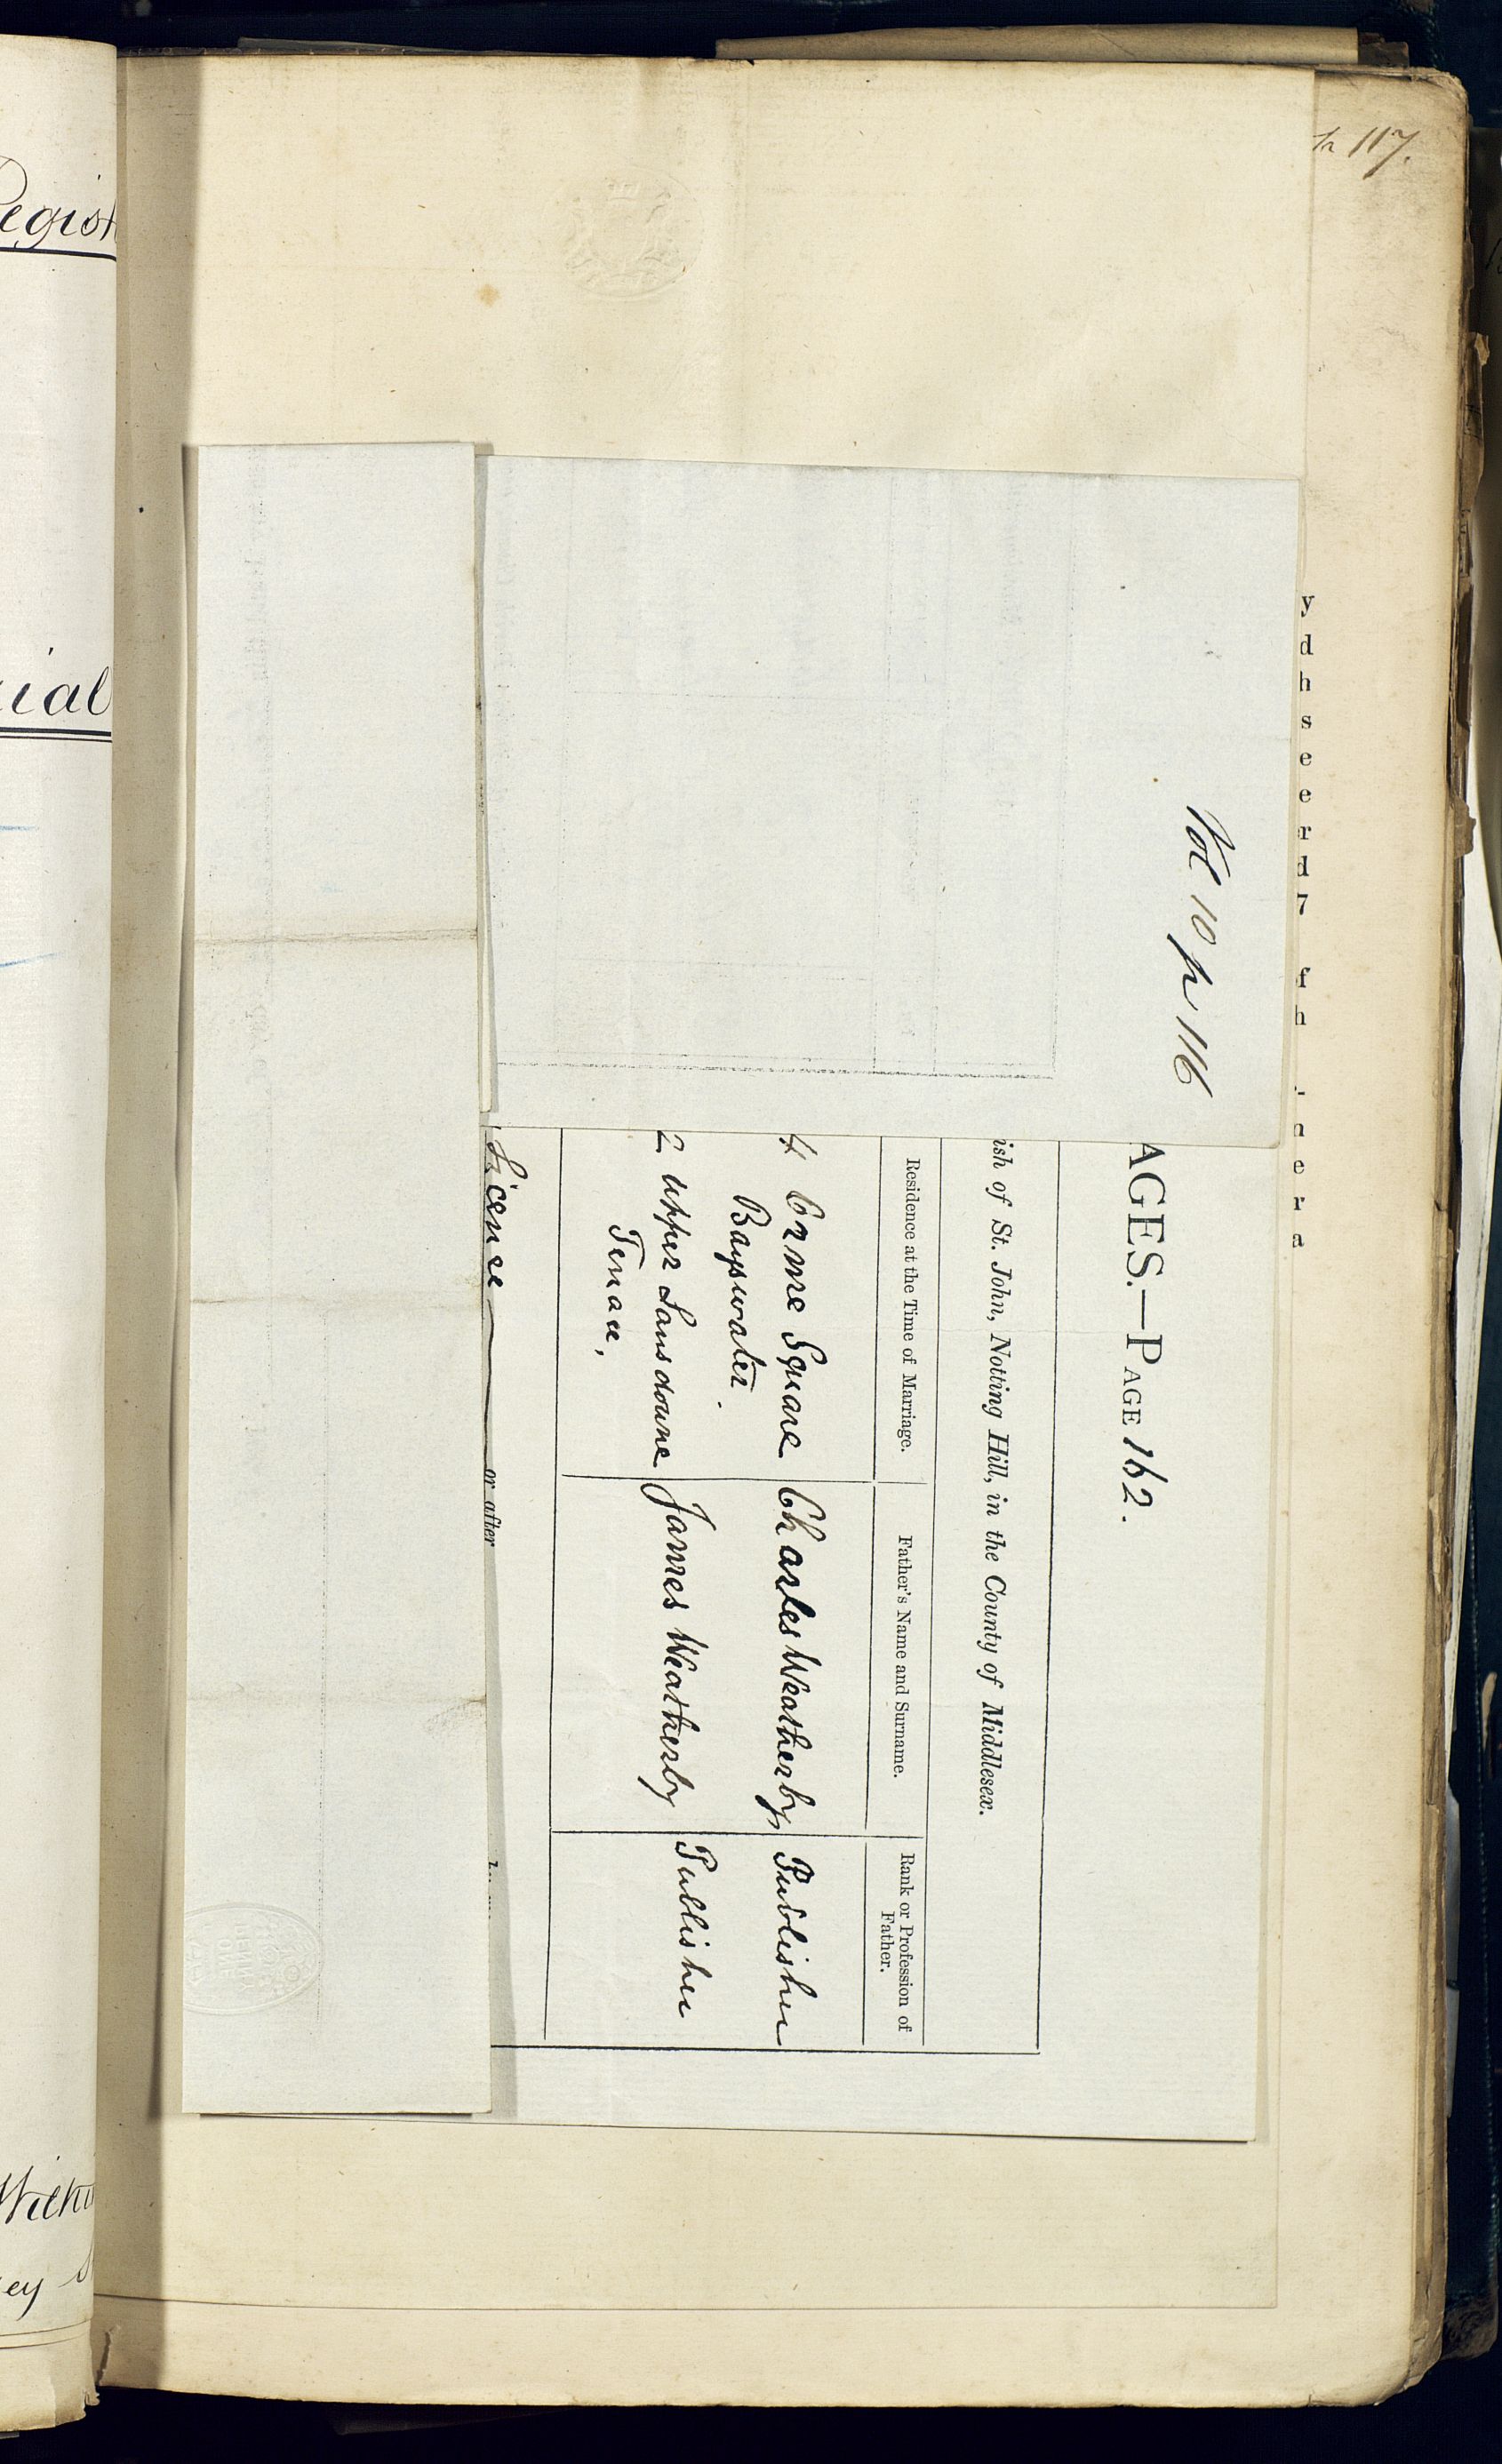 117.
Regist
ial
Vol 10 p 116
AGES.—PAGE 162.
ish of St. John, Notting Hill, in the County of Middlesex.
Residence at the Time of Marriage.
Father's Name and Surname.
Rank or Profession of
Father.
4 Orme Square
Bayswater.
Charles Weatherby
Publisher
2 Upper Lansdowne
Terrace,
James Weatherby
Publisher
Licence
or after
y
d
h
s
e
e
r
d
7
f
h
e
r
a
ey